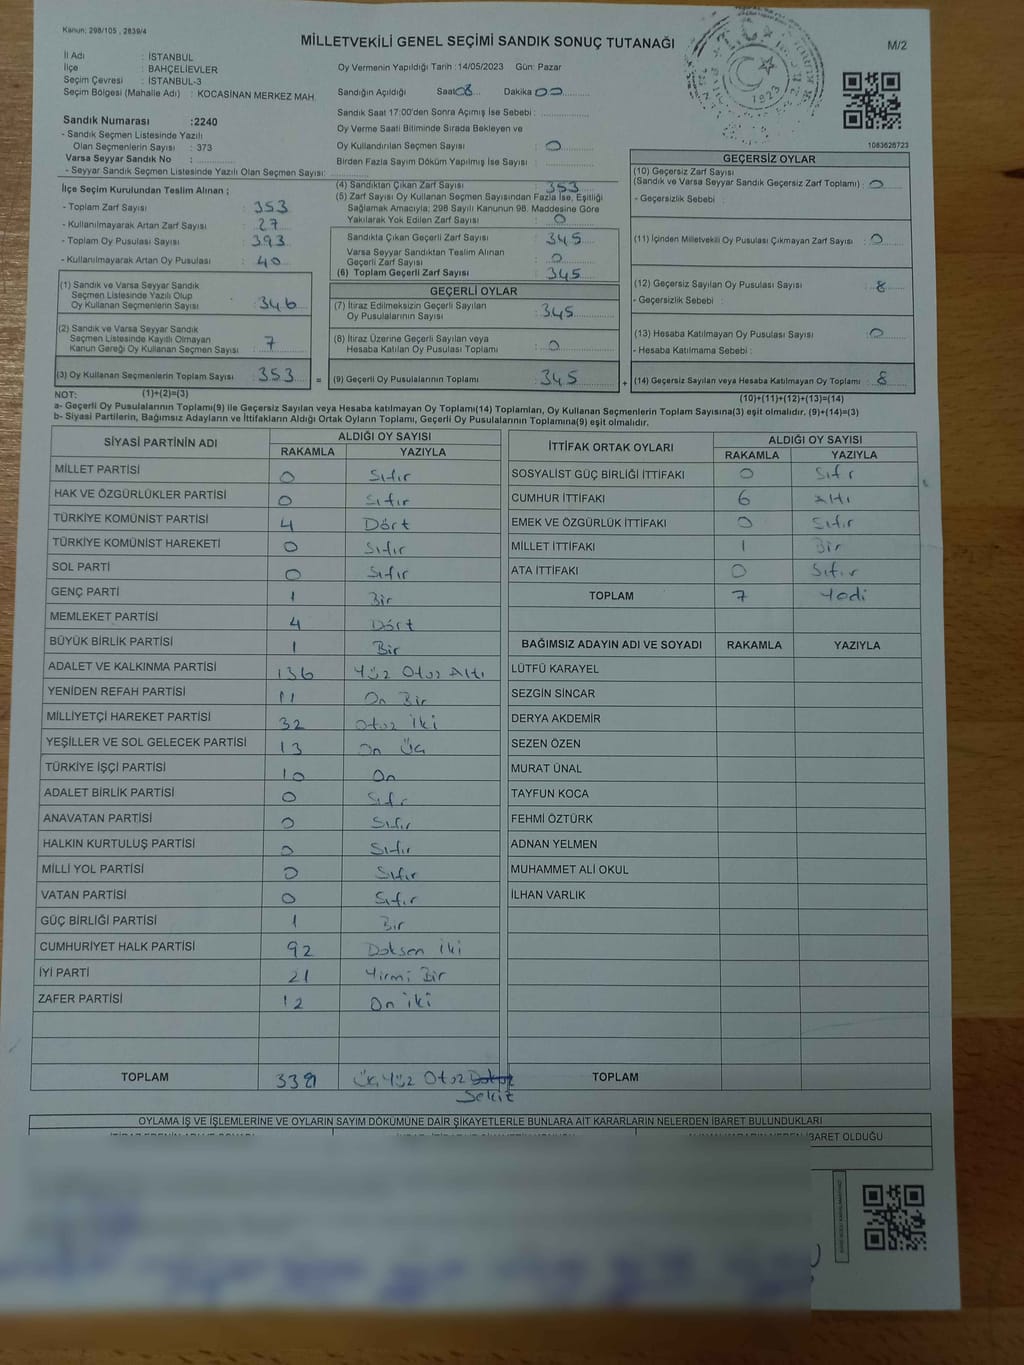 Kanun: 298/105 , 2839/4
MİLLETVEKİLİ GENEL SEÇİMİ SANDIK SONUÇ TUTANAĞI
M/2
İl Adı : İSTANBUL
İlçe : BAHÇELİEVLER
Seçim Çevresi : İSTANBUL-3
Seçim Bölgesi (Mahalle Adı) : KOCASİNAN MERKEZ MAH
Oy Vermenin Yapıldığı Tarih :14/05/2023 Gün: Pazar
Sandığın Açıldığı Saat 08 Dakika 00
Sandık Saat 17:00'den Sonra Açımış İse Sebebi :
Oy Verme Saati Bitiminde Sırada Bekleyen ve
Oy Kullandırılan Seçmen Sayısı : 0
Birden Fazla Sayım Döküm Yapılmış İse Sayısı :
1083626723
Sandık Numarası :2240
- Sandık Seçmen Listesinde Yazılı
Olan Seçmenlerin Sayısı : 373
Varsa Seyyar Sandık No :
- Seyyar Sandık Seçmen Listesinde Yazılı Olan Seçmen Sayısı:
İlçe Seçim Kurulundan Teslim Alınan ;
- Toplam Zarf Sayısı : 353
- Kullanılmayarak Artan Zarf Sayısı : 27
- Toplam Oy Pusulası Sayısı : 393
- Kullanılmayarak Artan Oy Pusulası : 40
(1) Sandık ve Varsa Seyyar Sandık
Seçmen Listesinde Yazılı Olup
Oy Kullanan Seçmenlerin Sayısı : 346
(2) Sandık ve Varsa Seyyar Sandık
Seçmen Listesinde Kayıtlı Olmayan
Kanun Gereği Oy Kullanan Seçmen Sayısı : 7
(3) Oy Kullanan Seçmenlerin Toplam Sayısı : 353
(4) Sandıktan Çıkan Zarf Sayısı : 353
(5) Zarf Sayısı Oy Kullanan Seçmen Sayısından Fazla İse, Eşitliği
Sağlamak Amacıyla; 298 Sayılı Kanunun 98. Maddesine Göre
Yakılarak Yok Edilen Zarf Sayısı : 0
Sandıkta Çıkan Geçerli Zarf Sayısı : 345
Varsa Seyyar Sandıktan Teslim Alınan
Geçerli Zarf Sayısı : 0
(6) Toplam Geçerli Zarf Sayısı : 345
GEÇERLİ OYLAR
(7) İtiraz Edilmeksizin Geçerli Sayılan
Oy Pusulalarının Sayısı : 345
(8) İtiraz Üzerine Geçerli Sayılan veya
Hesaba Katılan Oy Pusulası Toplamı : 0
= (9) Geçerli Oy Pusulalarının Toplamı : 345
GEÇERSİZ OYLAR
(10) Geçersiz Zarf Sayısı
(Sandık ve Varsa Seyyar Sandık Geçersiz Zarf Toplamı) : 0
- Geçersizlik Sebebi :
(11) İçinden Milletvekili Oy Pusulası Çıkmayan Zarf Sayısı : 0
(12) Geçersiz Sayılan Oy Pusulası Sayısı : 8
- Geçersizlik Sebebi :
(13) Hesaba Katılmayan Oy Pusulası Sayısı : 0
- Hesaba Katılmama Sebebi :
+ (14) Geçersiz Sayılan veya Hesaba Katılmayan Oy Toplamı : 8
NOT: (1)+(2)=(3) (10)+(11)+(12)+(13)=(14)
a- Geçerli Oy Pusulalarının Toplamı(9) ile Geçersiz Sayılan veya Hesaba katılmayan Oy Toplamı(14) Toplamları, Oy Kullanan Seçmenlerin Toplam Sayısına(3) eşit olmalıdır. (9)+(14)=(3)
b- Siyasi Partilerin, Bağımsız Adayların ve İttifakların Aldığı Ortak Oyların Toplamı, Geçerli Oy Pusulalarının Toplamına(9) eşit olmalıdır.
SİYASİ PARTİNİN ADI ALDIĞI OY SAYISI
RAKAMLA YAZIYLA
MİLLET PARTİSİ 0 Sıfır
HAK VE ÖZGÜRLÜKLER PARTİSİ 0 Sıfır
TÜRKİYE KOMÜNİST PARTİSİ 4 Dört
TÜRKİYE KOMÜNİST HAREKETİ 0 Sıfır
SOL PARTİ 0 Sıfır
GENÇ PARTİ 1 Bir
MEMLEKET PARTİSİ 4 Dört
BÜYÜK BİRLİK PARTİSİ 1 Bir
ADALET VE KALKINMA PARTİSİ 136 Yüz Otuz Altı
YENİDEN REFAH PARTİSİ 11 On Bir
MİLLİYETÇİ HAREKET PARTİSİ 32 Otuz İki
YEŞİLLER VE SOL GELECEK PARTİSİ 13 On Üç
TÜRKİYE İŞÇİ PARTİSİ 10 On
ADALET BİRLİK PARTİSİ 0 Sıfır
ANAVATAN PARTİSİ 0 Sıfır
HALKIN KURTULUŞ PARTİSİ 0 Sıfır
MİLLİ YOL PARTİSİ 0 Sıfır
VATAN PARTİSİ 0 Sıfır
GÜÇ BİRLİĞİ PARTİSİ 1 Bir
CUMHURİYET HALK PARTİSİ 92 Doksan İki
İYİ PARTİ 21 Yirmi Bir
ZAFER PARTİSİ 12 On iki
TOPLAM 338 Üç Yüz Otuz Dokuz
Sekiz
İTTİFAK ORTAK OYLARI ALDIĞI OY SAYISI
RAKAMLA YAZIYLA
SOSYALİST GÜÇ BİRLİĞİ İTTİFAKI 0 Sıfır
CUMHUR İTTİFAKI 6 Altı
EMEK VE ÖZGÜRLÜK İTTİFAKI 0 Sıfır
MİLLET İTTİFAKI 1 Bir
ATA İTTİFAKI 0 Sıfır
TOPLAM 7 Yedi
BAĞIMSIZ ADAYIN ADI VE SOYADI RAKAMLA YAZIYLA
LÜTFÜ KARAYEL
SEZGİN SİNCAR
DERYA AKDEMİR
SEZEN ÖZEN
MURAT ÜNAL
TAYFUN KOCA
FEHMİ ÖZTÜRK
ADNAN YELMEN
MUHAMMET ALİ OKUL
İLHAN VARLIK
TOPLAM
OYLAMA İŞ VE İŞLEMLERİNE VE OYLARIN SAYIM DÖKÜMÜNE DAİR ŞİKAYETLERLE BUNLARA AİT KARARLARIN NELERDEN İBARET BULUNDUKLARI
İBARET OLDUĞU